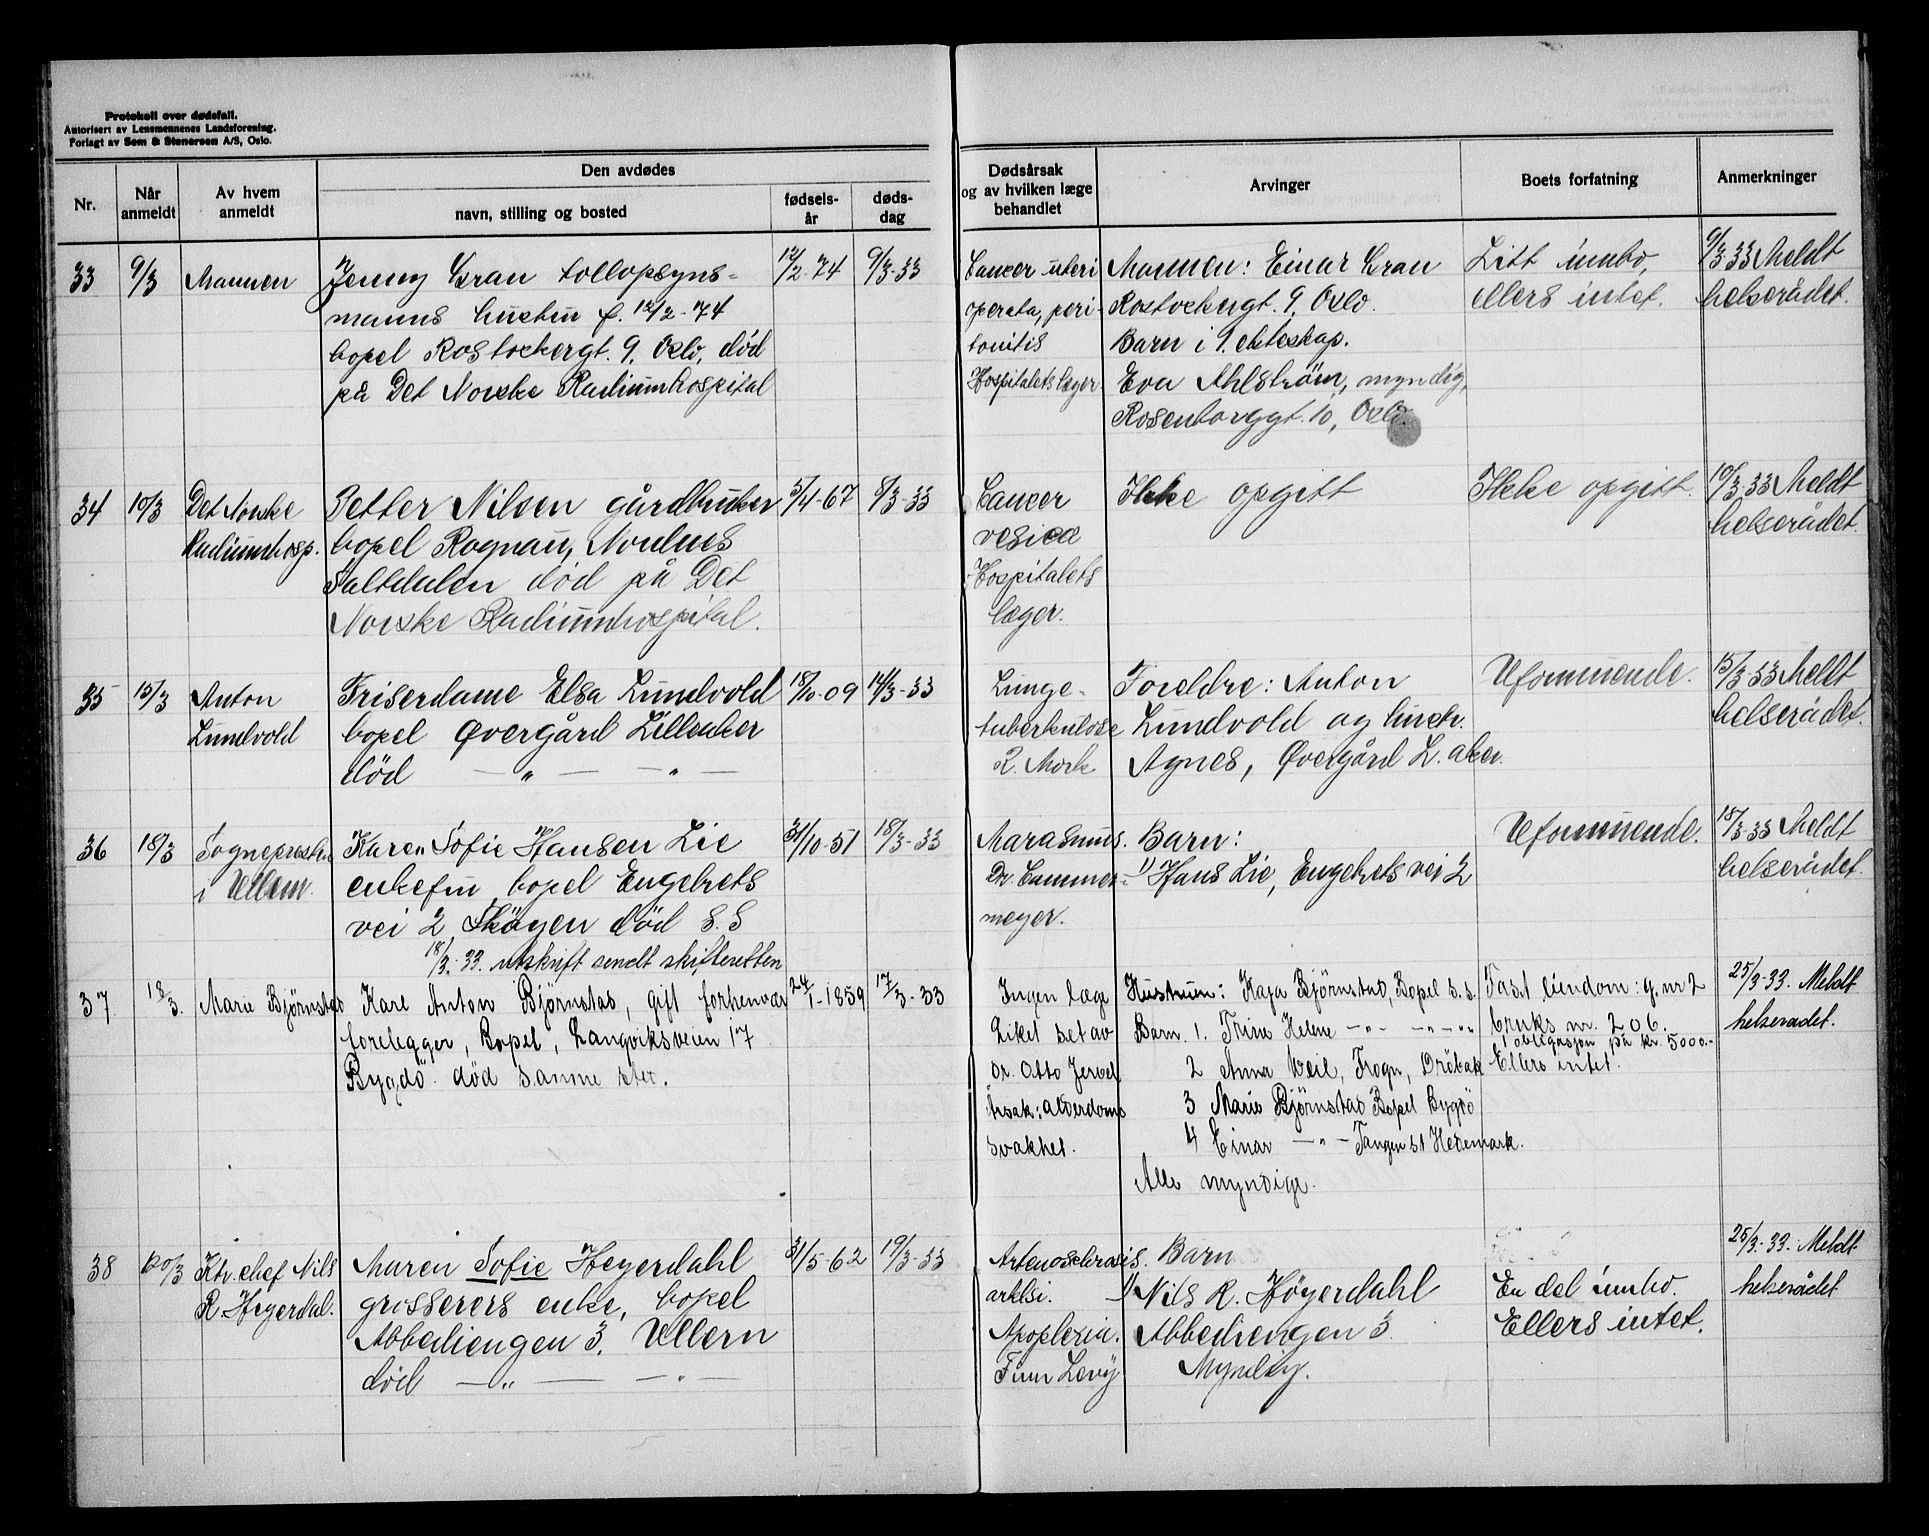 Protokoll over dødsfall.
Autorisert av Lensmennenes Landsforening.
Forlagt av Sem & Stenersen A/S, Oslo.
Nr.
Når anmeldt
Av hvem anmeldt
Den avdødes
navn, stilling og bosted
fødsels-år
døds-dag
Dødsårsak og av hvilken læge behandlet
Arvinger
Boets forfatning
Anmerkninger
33
9/3
Mannen
Jenny Gran tollopsyns-
manns hustru f. 12/2-74
bopel Rostockergt. 9, Oslo, død
på Det Norske Radiumhospital
12/2-74
9/3-33
Cancer uteri
operata, peri-
tonitis
Hospitalets læger
Mannen: Einar Gran
Rostockergt. 9, Oslo.
Barn i 1. ekteskap.
Eva Ahlstrøm, myndig,
Rosenborggt. 10, Oslo.
Litt innbo,
ellers intet.
9/3-33 Meldt
helserådet.
34
10/3
Det Norske
Radiumhosp.
Petter Nilsen gårdbruker
bopel Rognan, Nordnes
Saltdalen død på Det
Norske Radiumhospital.
5/4-67
8/3-33
Cancer
vesica
Hospitalets
læger.
Ikke opgitt
Ikke opgitt.
10/3-33 Meldt
helserådet.
35
15/3
Anton
Lundvold
Friserdame Elsa Lundvold
bopel Øvergård Lilleaker
død — " — — " —
18/10-09
14/3-33
Lunge-
tuberkulose
R. Mork
Foreldre: Anton
Lundvold og hustr.
Agnes, Øvergård L.aker.
Uformuende.
15/3-33 Meldt
helserådet.
36
18/3
Sognepresten
i Ullern.
Karen Sofie Hansen Lie
enkefru, bopel Engebrets
vei 2 Skøyen død S.S
18/3-33. utskrift sendt skifteretten
31/10-51
18/3-33
Marasmus.
Dr. Cammer-
meyer.
Barn:
1) Hans Lie, Engebrets vei 2
Uformuende.
18/3-33 Meldt
helserådet.
37
18/3.
Marie Bjørnstad
Karl Anton Bjørnstad, gift forhenvær
forlegger, Bopel, Langviksveien 17
Bygdö. död samme sted.
24/1-1859
17/3-33
Ingen læge
Liket set av
Dr. Otto Jervel
Årsak: alderdoms
svakhet.
Hustrum: Kaja Bjørnstad, Bopel S.S.
Barn. 1. Trine Helene — " — — " — " "
2 Anna Weil, Frogn, Dröbak
3 Marie Bjørnstad Bopel Bygdö
4 Einar — " — Tangen st Hedemark.
Alle myndige.
Fast eiendom: g.nr 2
bruks nr. 206.
1 obligasjon på kr. 5000.-
Ellers intet.
25/3-33. Meldt
helserådet.
38
20/3
Ktr.chef Nils
R. Heyerdal.
Maren Sofie Heyerdahl
grosserers enke, bopel
Abbediengen 3, Ullern
død — " — — " —
31/5-62
19/3-33
Arteriosclerosis.
Apoplexia.
Finn Levy
Barn
1) Nils R. Höyerdahl
Abbediengen 3
Myndig.
En del innbo.
Ellers intet.
25/3-33. Meldt
helserådet